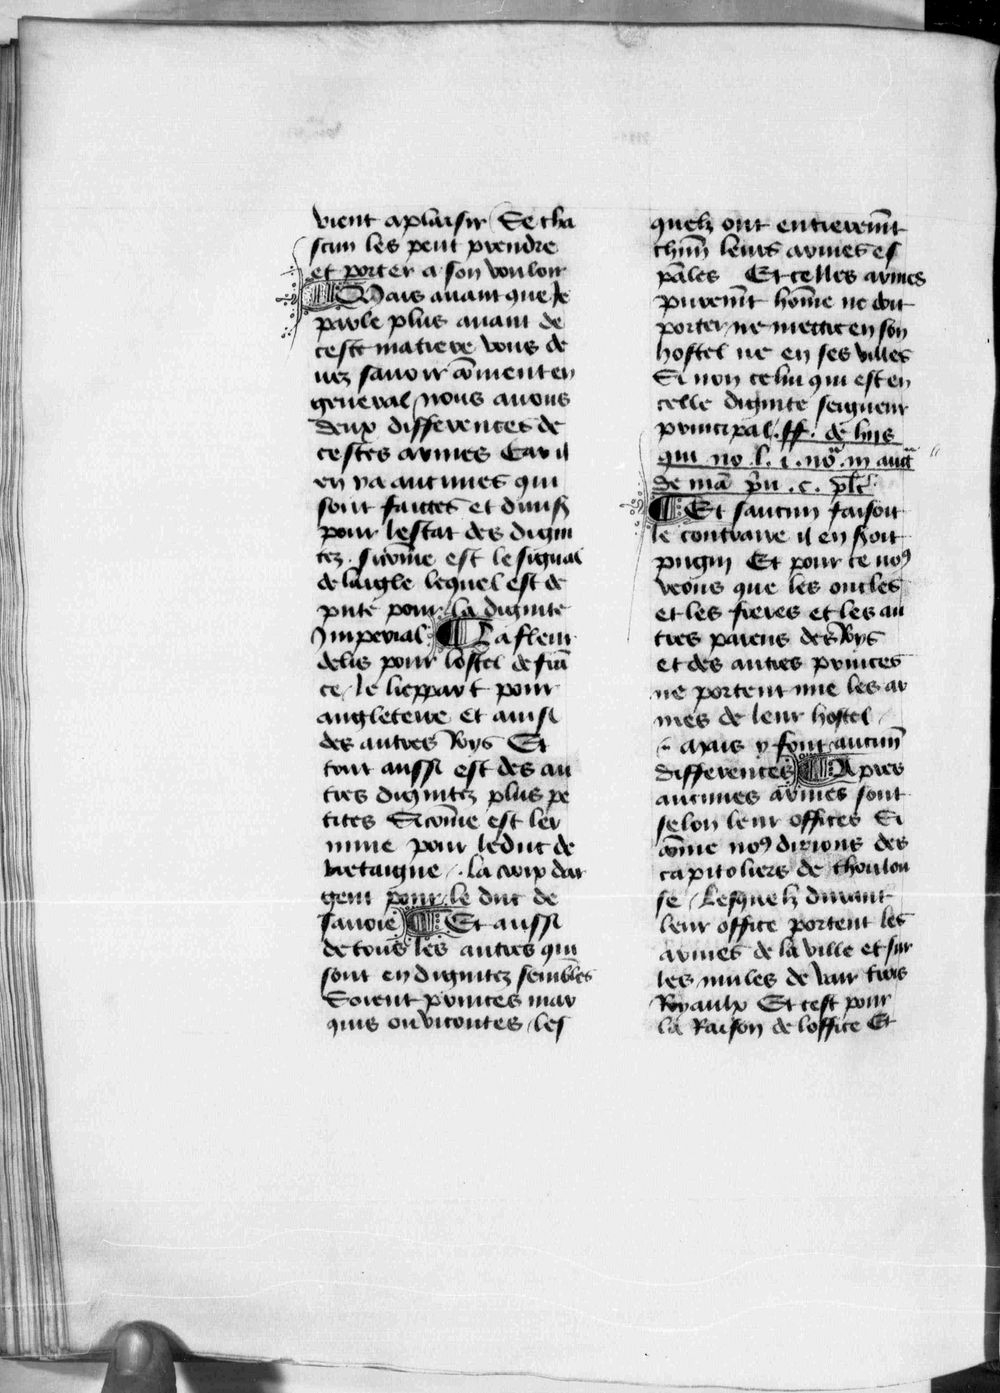 vient a plaisir Se cha
scun les peut prendre
et porter a son vouloir
¶ Mais auant que Je
parle plus auant de
ceste matiere vous de
uez sauoir cõment en
general nous auons
deux differences de
cestes armes Car il
en y a aucunes qui
sont faictes et
pour lestat des digni
tez. sicõme est le signal
de laigle lequel est de
pute pour la dignite
Imperial ¶ La fleur
delis pour lostel de frã
ce / le lieppart pour
angleterre et ainsi
des autres Roys Et
tout aussi est des au
tres dignitez plus pe
tites Sicõme est ler
mine pour le duc de
bretaigne . la croix dar
gent pour le duc de
sauoie ¶ Et aussi
de tous les autres qui
sont en dignitez sembles
Soient princes mar
quis ou vicontes / les
quelz ont entieremt̃
chũn leurs armes es
pãles Et celles armes
puremt̃ hõme ne doit
porter / ne mectre en son
hostel ne en ses villes
Si non celui qui est en
celle dignite seigneur
principal . ff. de hiis
qui no. l. i. nõ. in aug̃
de mã pñ . c.
¶ Et saucun faisoit
le contraire il en seroit
pugni Et pour ce noꝰ
veons que les oncles
et les freres et les au
tres parens des Roys
et des autres princes
ne portent mie les ar
mes de leur hostel
mais y font aucun̄
differences ¶ Apres
aucunes armes sont
selon leur offices Si
cõme noꝰ dirions des
capitoliers de thoulou
se / Lesquelz durant
leur office portent les
armes de la ville et sur
les mules de vair frois
Royaulx Et cest pour
la Raison de loffice Et